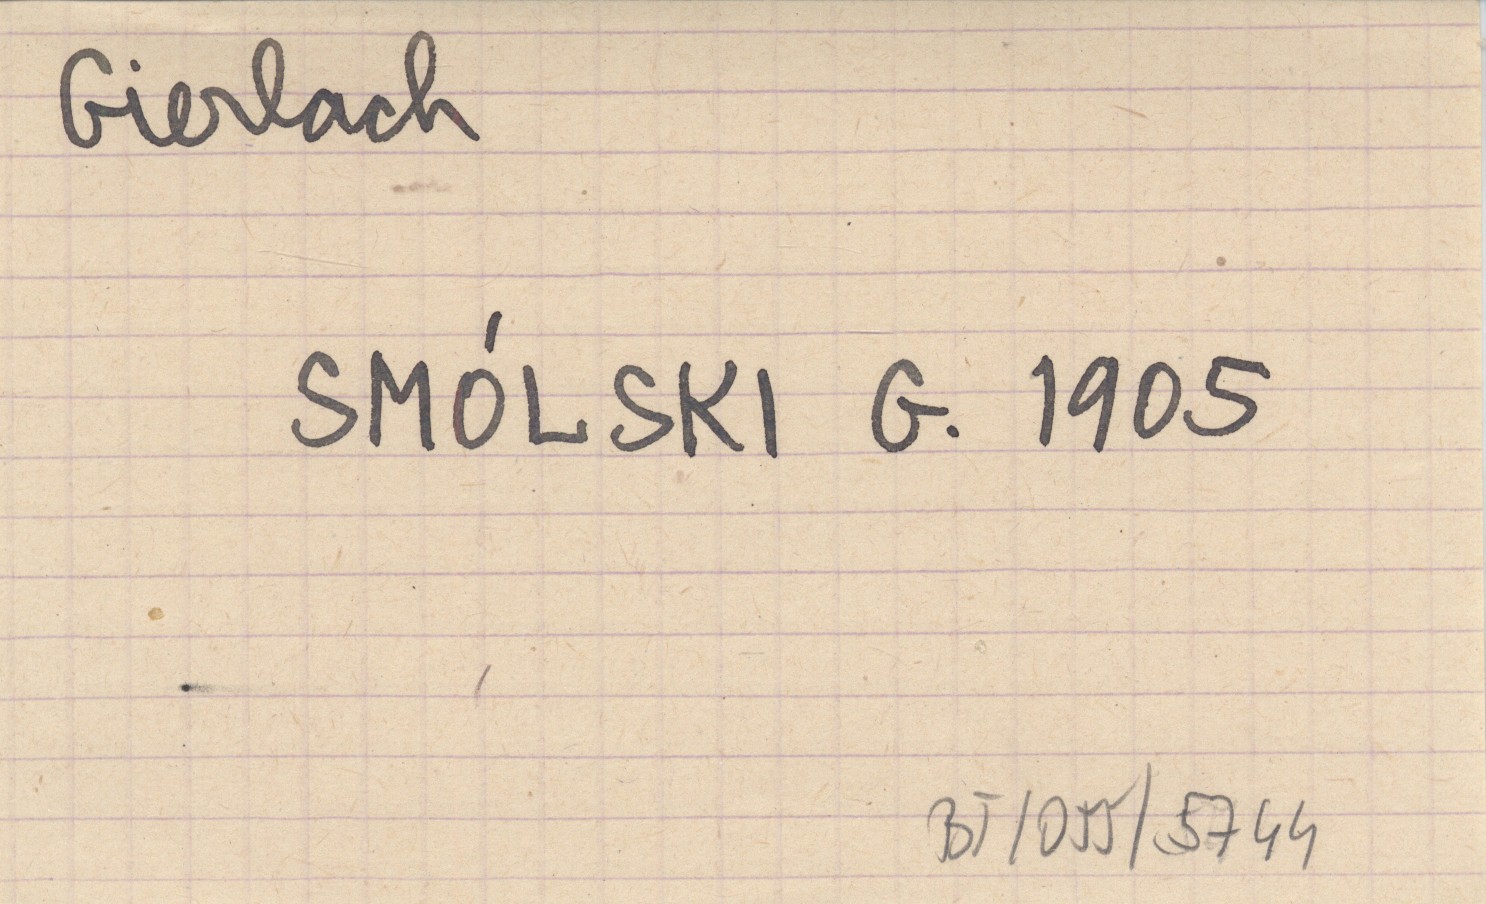 Gierlach
SMÓLSKI G. 1905
BT/055/5744